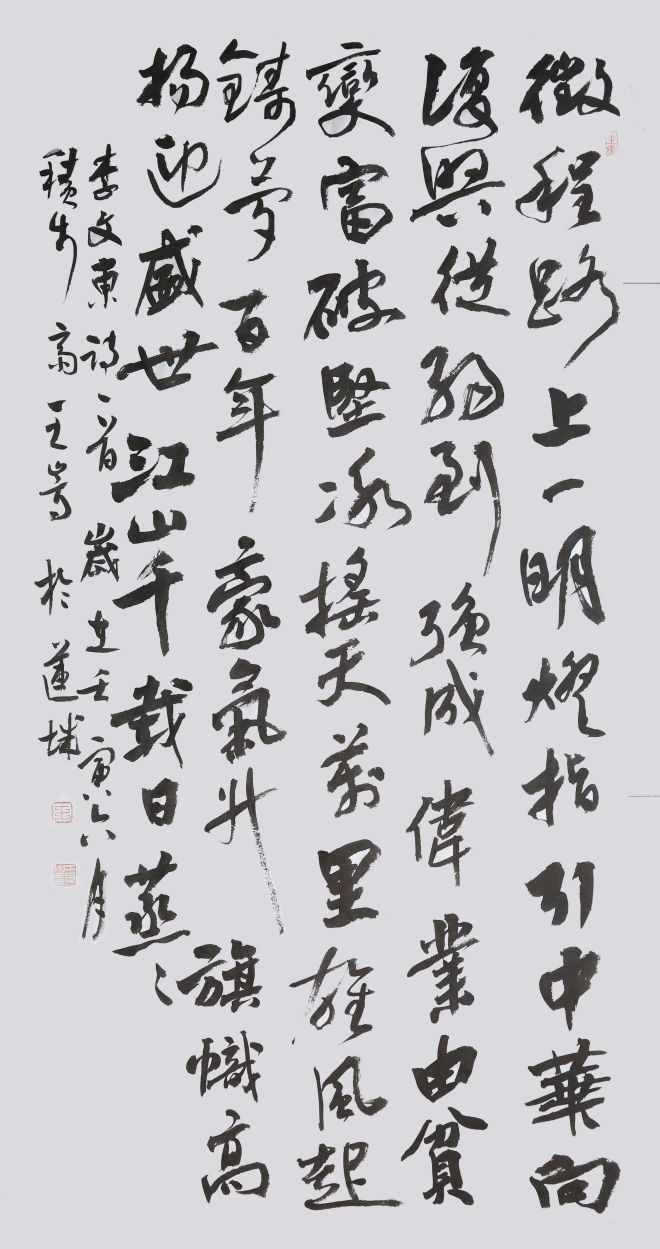 徵程路上一明燈指引中華向
復興從弱到強成偉業由貧
變富破堅冰搖天萬里雄風起
鑄夢百年豪氣升旗幟高
揚迎盛世江山千載日蒸〻
李文東詩一首歲在壬寅六月
積步斋王嵩於蓮城